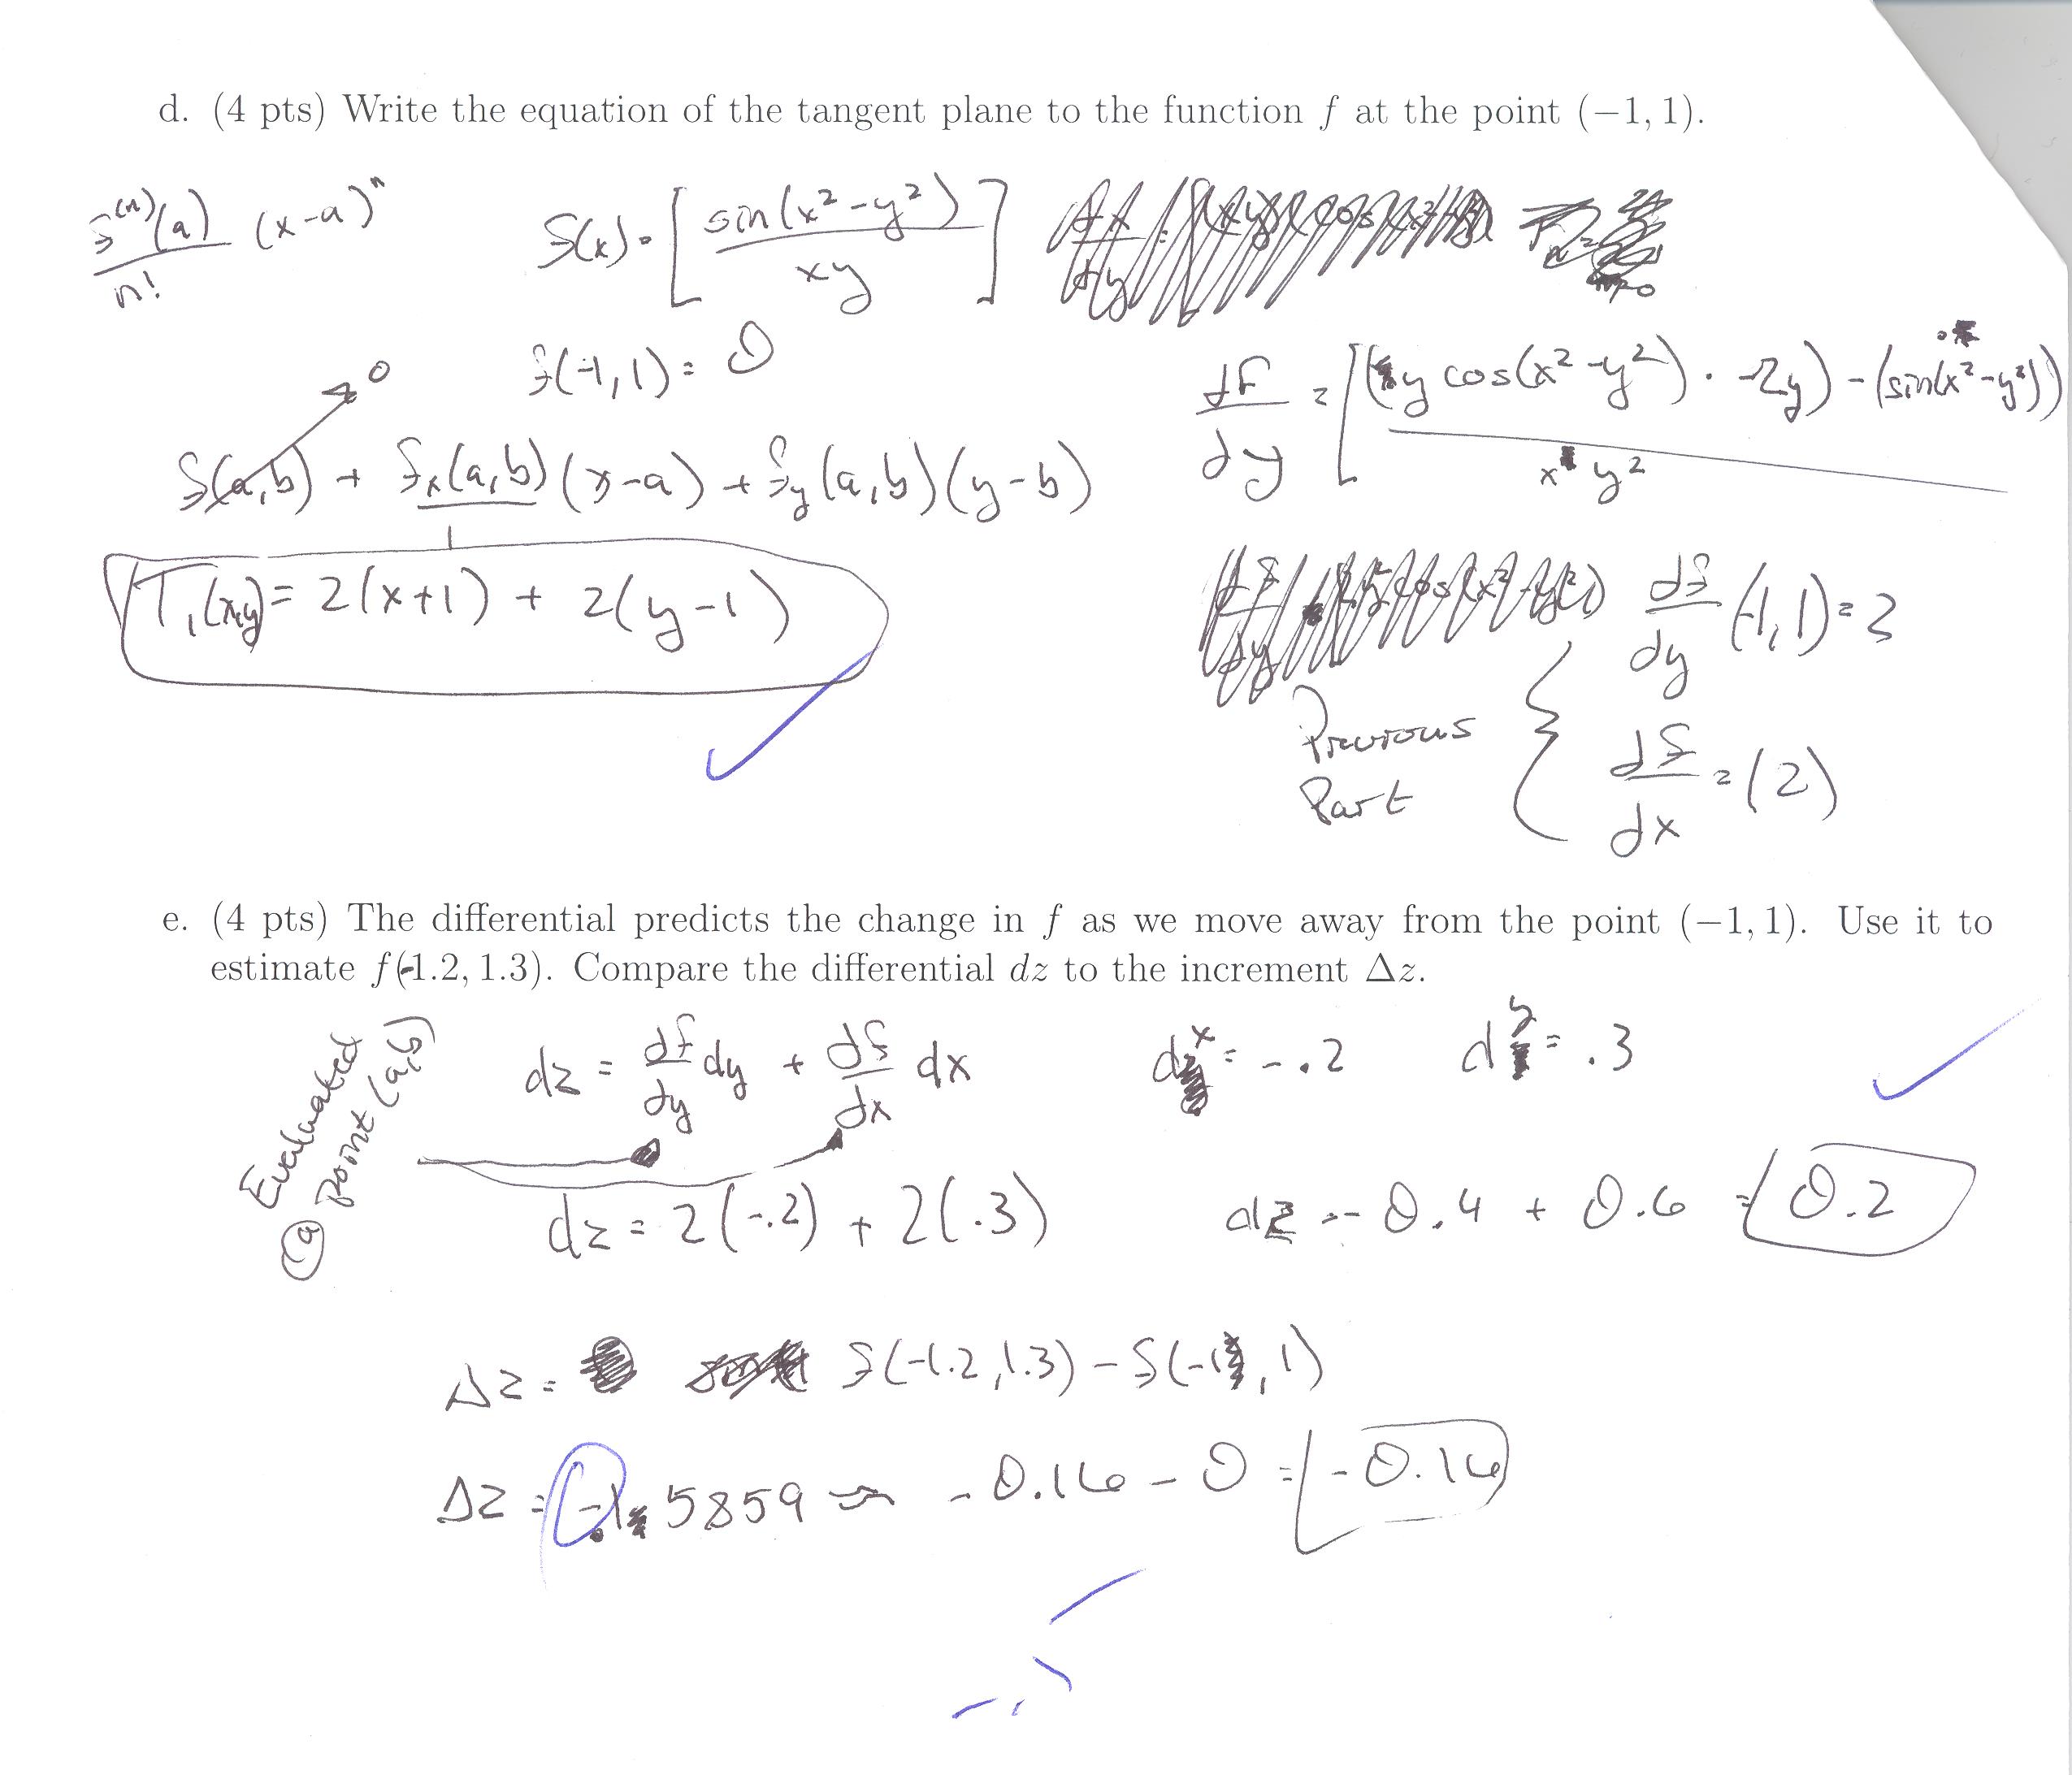 d. (4 pts) Write the equation of the tangent plane to the function f at the point (−1, 1).
f^(n)(a)/n! (x-a)^n
f(x) = [sin(x²-y²)/xy]
f(-1,1) = 0
dF/dy = [(y cos(x²-y²) · -2y) - (sin(x²-y²))/x y²
f(a,b) → 0 + f_x(a,b)/1 (x-a) + f_y(a,b)(y-b)
T₁(x,y) = 2(x+1) + 2(y-1)
df/dy (-1,1) = 2
Previous Part { df/dx = (2)
e. (4 pts) The differential predicts the change in f as we move away from the point (−1, 1). Use it to
estimate f(-1.2, 1.3). Compare the differential dz to the increment Δz.
Evaluated @ point (a,b)
dz = df/dy dy + df/dx dx
dx = -.2 dy = .3
dz = 2(-.2) + 2(.3)
dz = -0.4 + 0.6 = 0.2
Δz = f(-1.2,1.3) - f(-1,1)
Δz = -.15859 ≈ -0.16 - 0 = -0.16